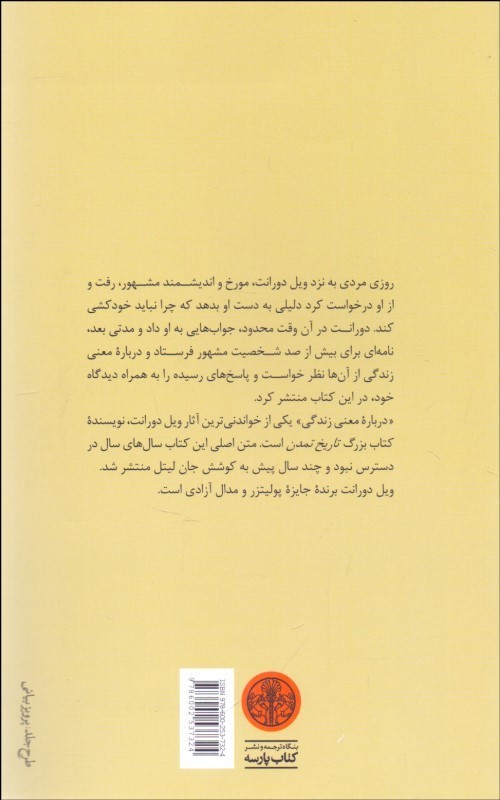 روزی مردی به نزد ویل دورانت، مورخ و اندیشمند مشهور، رفت و
از او درخواست کرد دلیلی به دست او بدهد که چرا نباید خودکشی
کند. دورانت در آن وقت محدود، جواب‌هایی به او داد و مدتی بعد،
نامه‌ای برای بیش از صد شخصیت مشهور فرستاد و دربارهٔ معنی
زندگی از آن‌ها نظر خواست و پاسخ‌های رسیده را به همراه دیدگاه
خود، در این کتاب منتشر کرد.
«دربارهٔ معنی زندگی» یکی از خواندنی‌ترین آثار ویل دورانت، نویسندهٔ
کتاب بزرگ تاریخ تمدن است. متن اصلی این کتاب سال‌های سال در
دسترس نبود و چند سال پیش به کوشش جان لیتل منتشر شد.
ویل دورانت برندهٔ جایزهٔ پولیتزر و مدال آزادی است.
طرح جلد: پرویز بیانی
ISBN 978-600-253-732-4
9786002537324
بنگاه ترجمه و نشر
کتاب پارسه